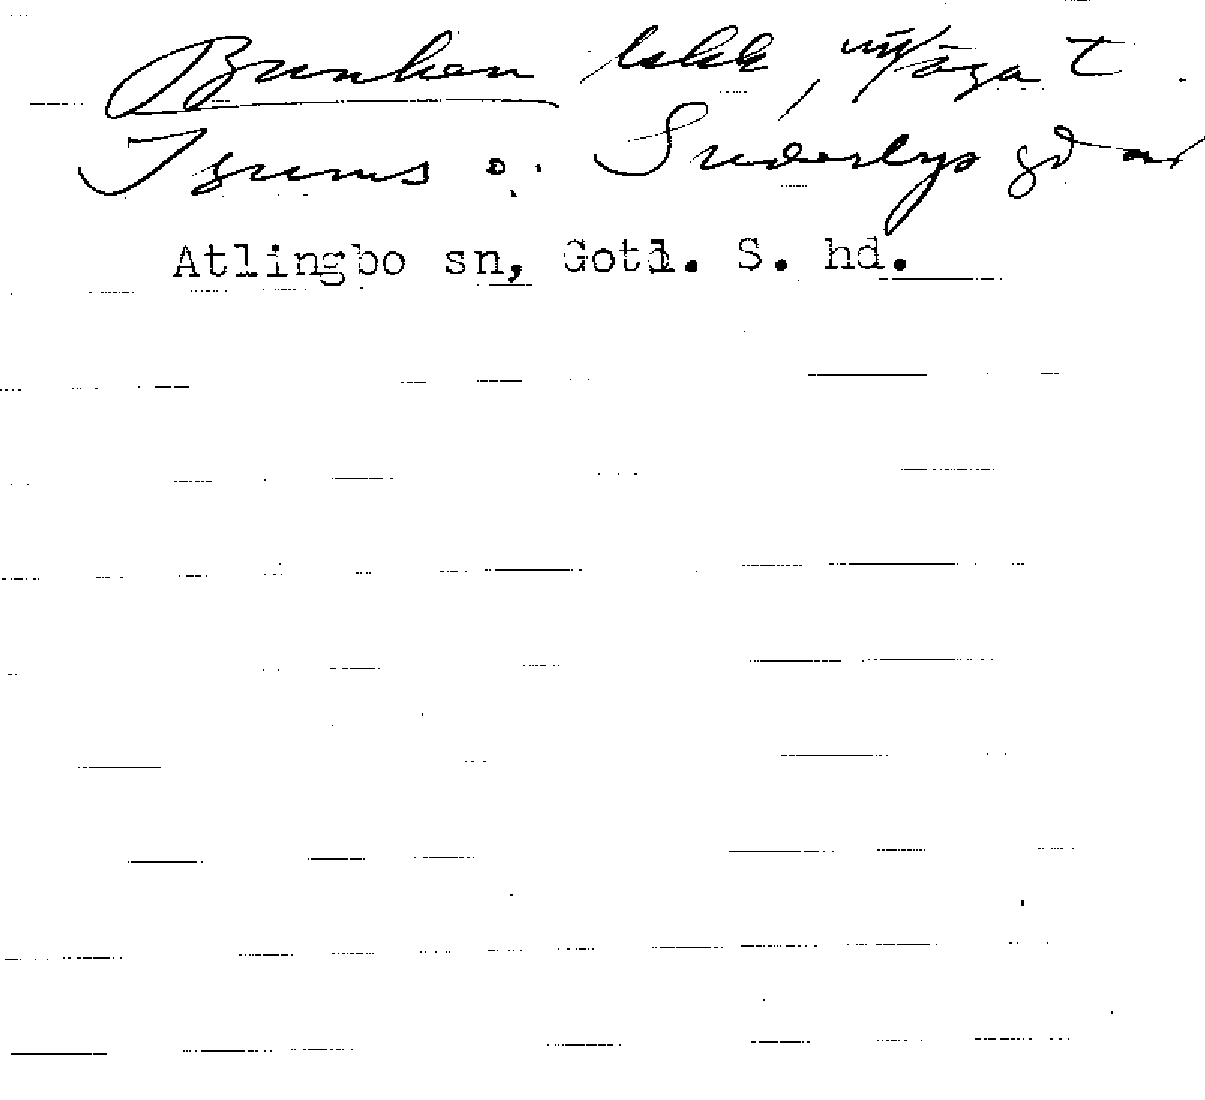 Brunken lokk, någa t.
Isums o. Suderbys gdar
Atlingbo sn, Gotl. S. hd.